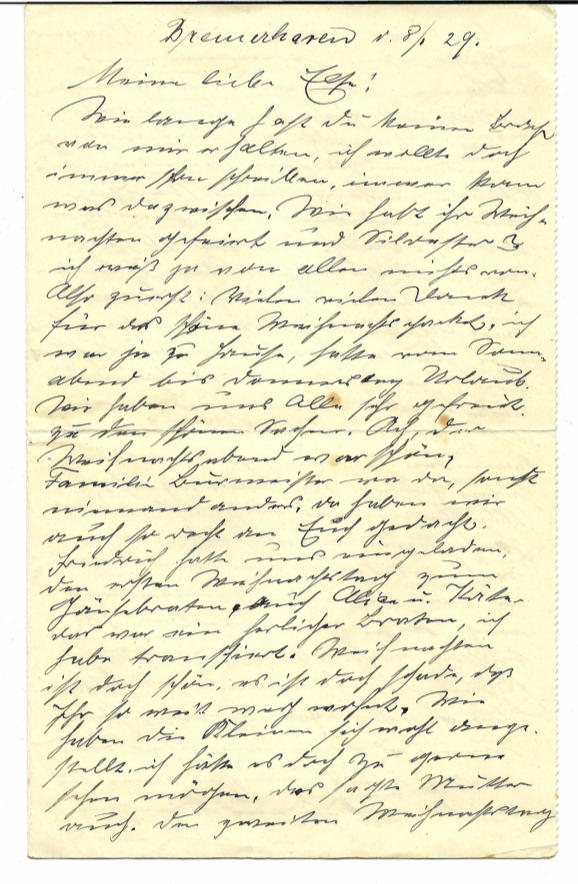 Bremerhaven d. 8/1 29.
Meine liebe Else!
Wie lange hast du keinen Brief
von mir erhalten, ich wollte doch
immer schon schreiben, immer kam
was dazwischen. Wie habt ihr Weih-
nachten gefeiert und Silvester?
ich weiß ja von allen nichts von.
Also zuerst: Vielen vielen Dank
für das schöne Weihnachtspacket, ich
war ja zu Hause, hatte vom Sonn-
abend bis Donnerstag Urlaub.
Wir haben uns Alle sehr gefreut
zu den schönen Sachen. Ach, der
Weihnachtsabend war schön,
Familie Burmeister war da, sonst
niemand anders, da haben wir
auch so recht an Euch gedacht.
Friedrich hatte uns eingeladen,
den ersten Weihnachtstag zum
Gänsebraten, auch Alice u. Käte.
das war ein herlicher Braten, ich
habe transchiert. Weihnachten
ist doch schön, es ist doch schade, daß
Ihr so weit weg wohnt. Wie
haben die Kleinen sich wohl ange-
stellt, ich hätte es doch zu gerne
sehen mögen, das sagte Mutter
auch. Den zweiten Weihnachtstag